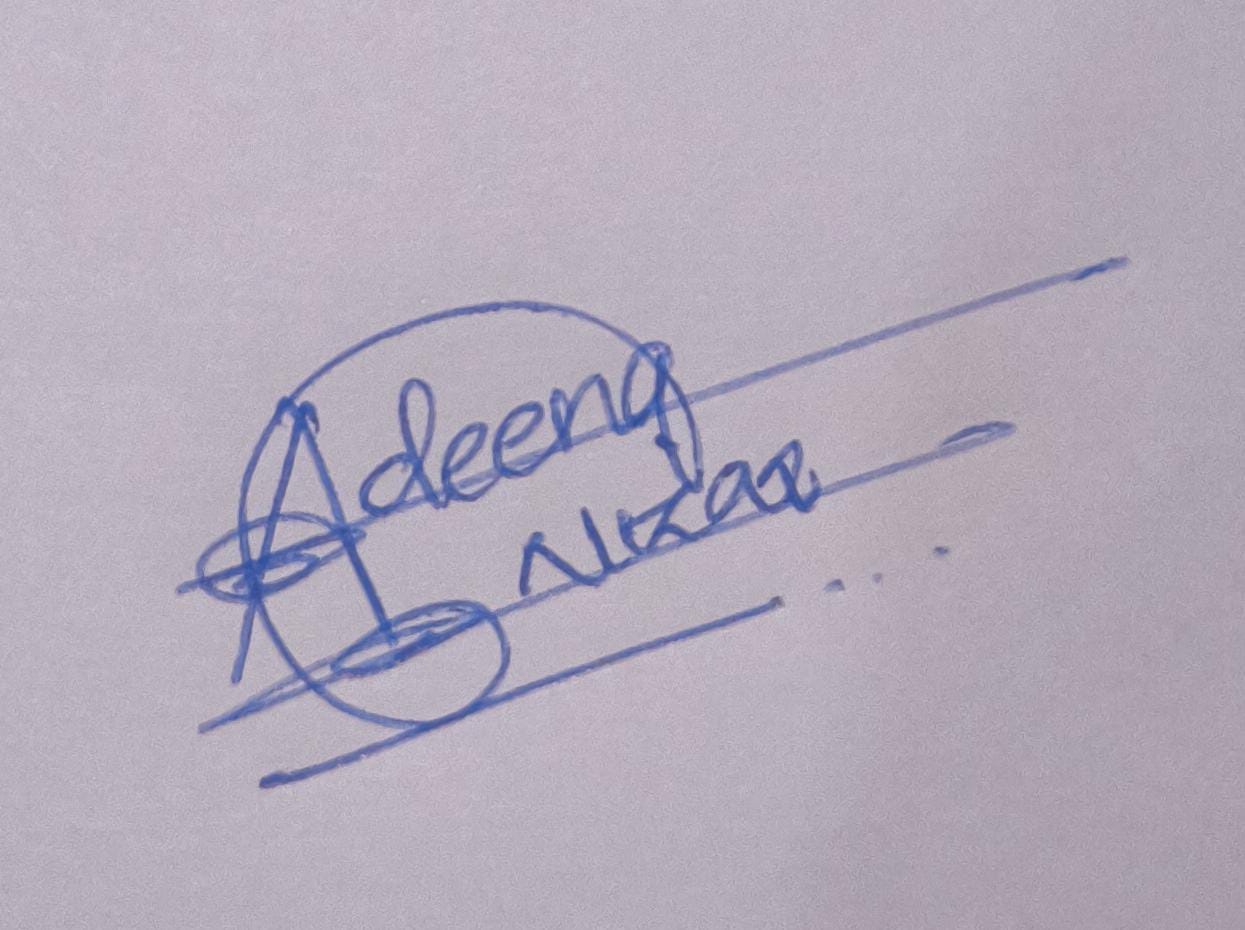 Adeena
Nizar